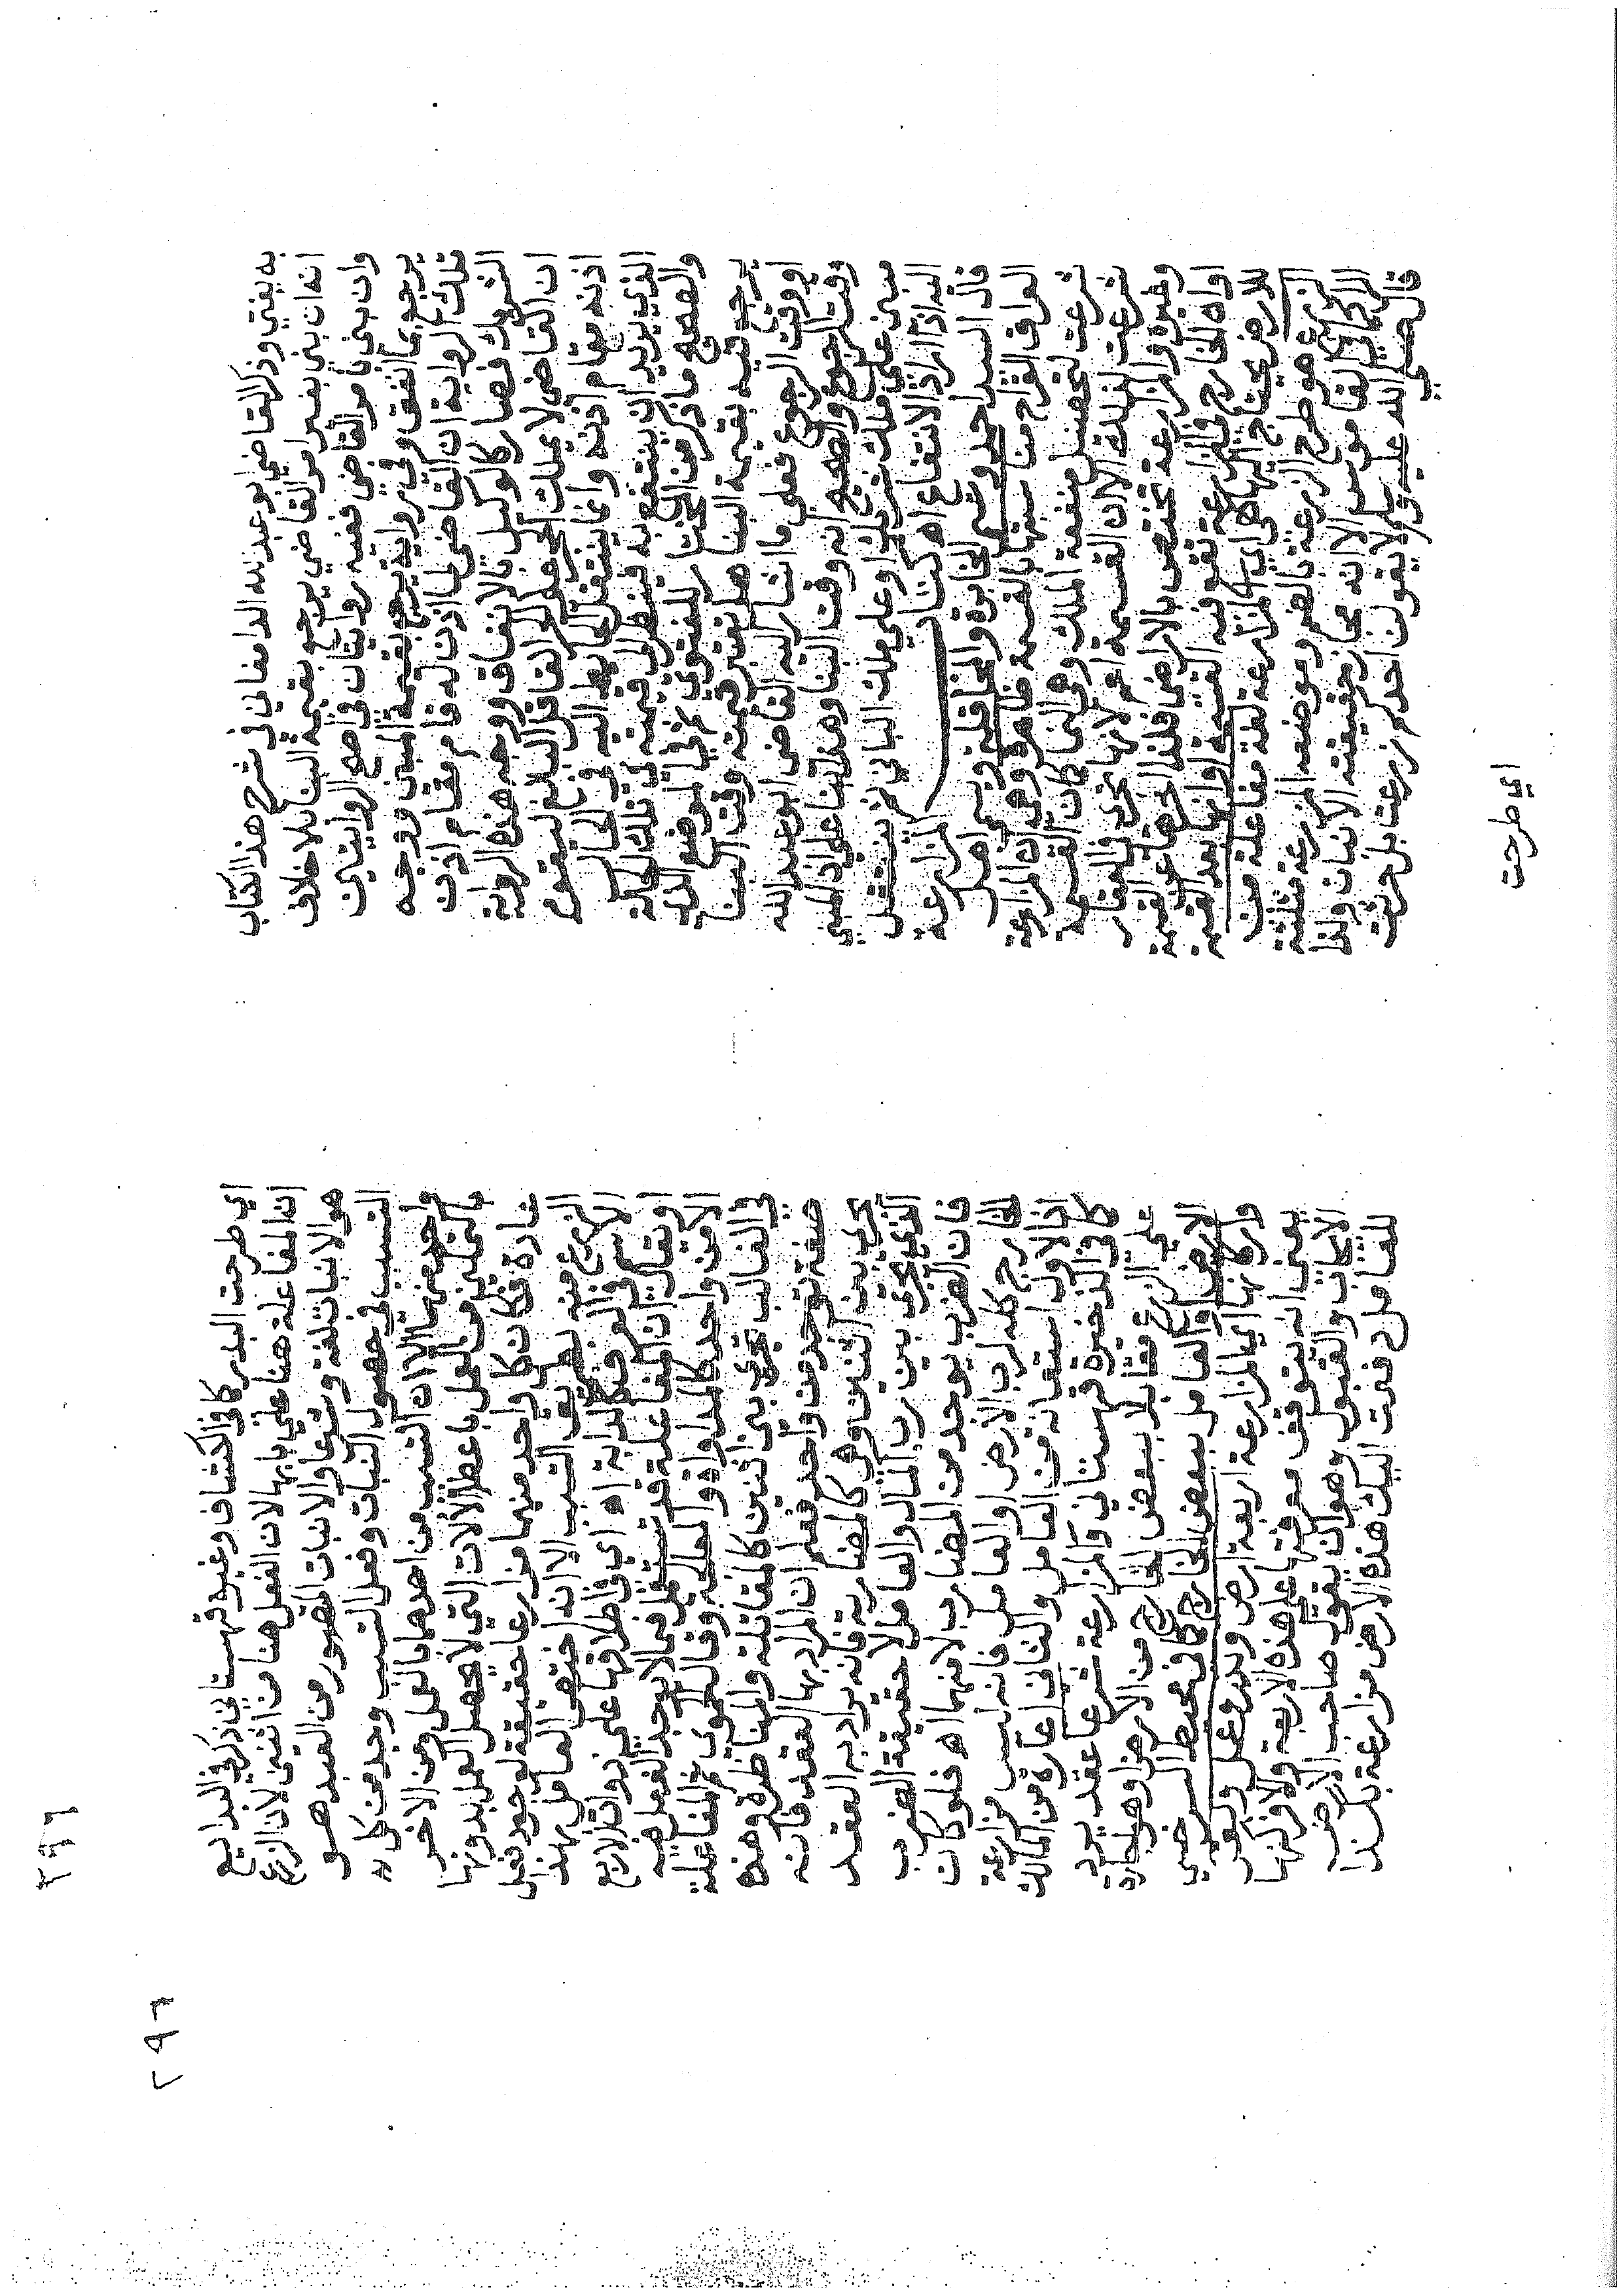 به يفتي وذكر القاضي ابو عبد الله الدامغاني في شرح هذا الكتاب
انه ان بني بغير امر القاضي يرجع بقيمة البنا بلا خلاف
وان بني بامر القاضي ففيه روايتان في اصح الروايتين
يرجع بما انفق وفي رواية يرجع بقيمة المبني ووجه
تلك الرواية ان القاضي لما اذن له قام مقام اذن
الشريك فصار كالوكيل بالانفاق ووجه هذه الرواية
ان القاضي لا يملك الحجر على العاقل البالغ ليقوم
اذنه مقام اذنه وانما ينتقل
الذي يريد ان ينتفع به فينظر الى قيمته في تلك الحالة
والصحيح ما ذكر من المختار للفتوى ثم في الموضع الذي
يرجع فيه بقيمة البنا هل تعتبر قيمته وقت البنا
او وقت الرجوع فعلى ما اشار اليه القاضي ابو عبد الله
وقت الرجوع والصحيح انه وقت البنا وهذا بنا على ان المبني
مبني على ملك الشريك او على ملك الباني ثم ينتقل
اليه اذا اراد الانتفاع اه كتاب المزارعة
قال السيد احمد وتسمى المخابرة والمحاقلة ويسميها اهل
العراق القراح مناسبتها بالقسمة ظاهرة وهي ان المزارعة
شرعت لتحصيل منفعة الملك وهي لما كان القسمة
شرعت لذلك الا ان القسمة اعم لانها تجري في العقار
وغيره والمزارعة تختص بالارض فلذا اخرها عن القسمة
او ان الخارج في المزارعة تقع فيه القسمة وانها بعد القسمة
للارض يحتاج اليها هي اي المزارعة لغة مفاعلة من
الزرع هو طرح الزرعة بالضم وموضعه المزرعة مثلثة
الراء كما في القاموس الا انه مجاز حقيقته الانبات ولذا
قال صلى الله عليه وسلم لا يقولن احدكم زرعت بل حرثت
اي طرحت
اي طرحت البذر كما في الكشاف وغيره قهستاني ذكر في البدايع
ان المفاعلة هنا على بابها لان الفعل هنا من اثنين لان الزرع
هو الانبات لغة وشرعا والانبات المتصور من العبد هو
التسبب في حصول النبات وفعل التسبب وجد من كل
واحد منهما الا ان التسبب من احدهما بالعمل ومن الاخر
بالتمكين من العمل باعطاء الالات التي لا يحصل العمل بدونها
عادة فكان كل واحد منهما مزارعا حقيقة لوجود فعل
الزرع منه بطريق التسبب الا انه اختص العامل بهذا
الاسم في العرف كالدابة اه اي في اطلاقها على ذوات الاربع
او يقال ان المفاعلة قد تستعمل فيما لا يوجد الفعل فيه
الا من واحد كالمداواة والمعالجة وقال الحموي ثم المفاعلة
في الغالب تجري بين اثنين كالمقاتلة والمناظرة وهذه
صفة توجد من واحد فعلم ان المراد بها العقد فانه
يجري بين اثنين وهي كالمضاربة فانه يراد به العقد
الذي يجري بين رب المال والعامل لا حقيقة الضرب
فان الضرب يوجد من المضارب لانهما اه فلو كان
الخارج كله لرب الارض او العامل فانه ليس مزارعة
اذ الاول استعانة من العامل والثاني اعارة من المالك
كما في الذخيرة قهستاني والمزارعة شرعا عقد يرد
على الزرع فقابلا ببعض الخارج من الارض وهو اجارة
الارض او العامل ببعض الخارج كما في محيط السرخسي
وركنها اي المزارعة اربعة ارض وبذر وعمل وبقر
يعني انه تتوقف معرفتها على هذه الاربعة والا فركنها
الايجاب والقبول وهو ان يقول صاحب الارض
للعامل دفعت اليك هذه الارض مزارعة بكذا
٢٩٦
٢٩٦